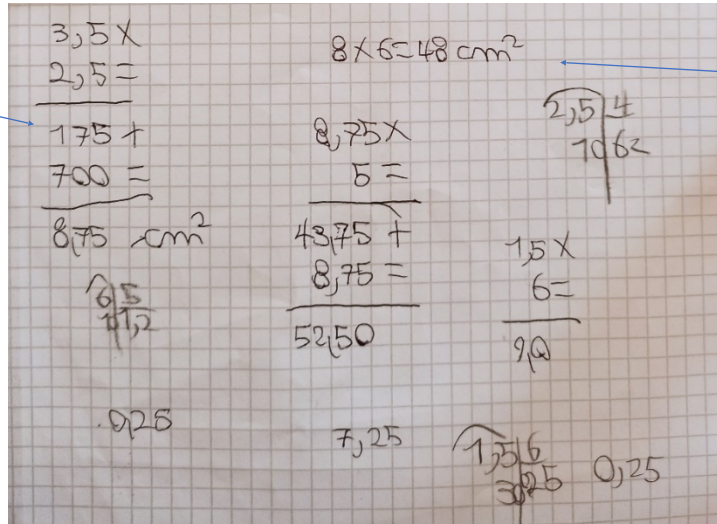 3,5 x
2,5 =
175 +
700 =
8,75 cm²
8 x 6 = 48 cm²
2,5 4
10 62
8,75 x
5 =
43,75 +
8,75 =
52,50
1,5 x
6 =
9,0
6 5
1,2
0,25
7,25
1,5 6
30 25
0,25